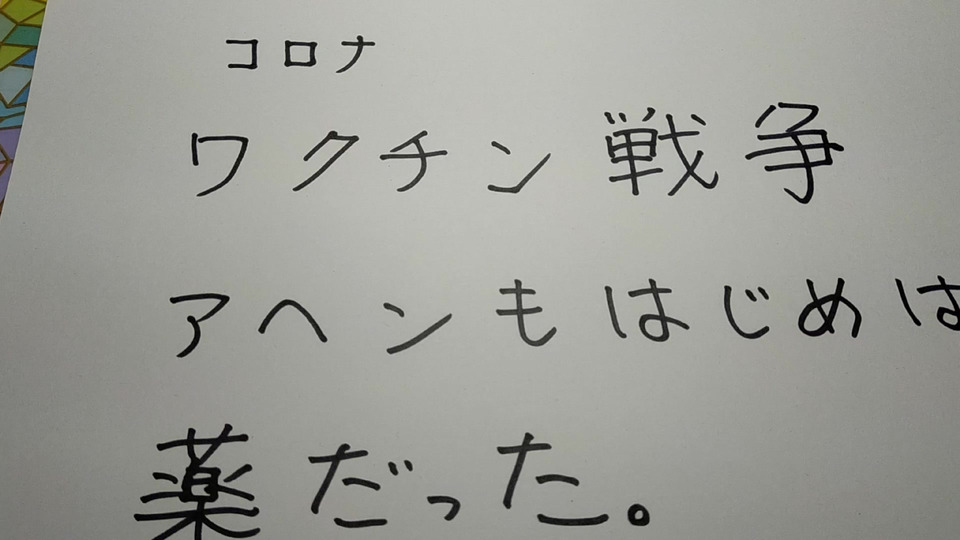 コロナ
ワクチン戦争
アヘンもはじめは
薬だった。